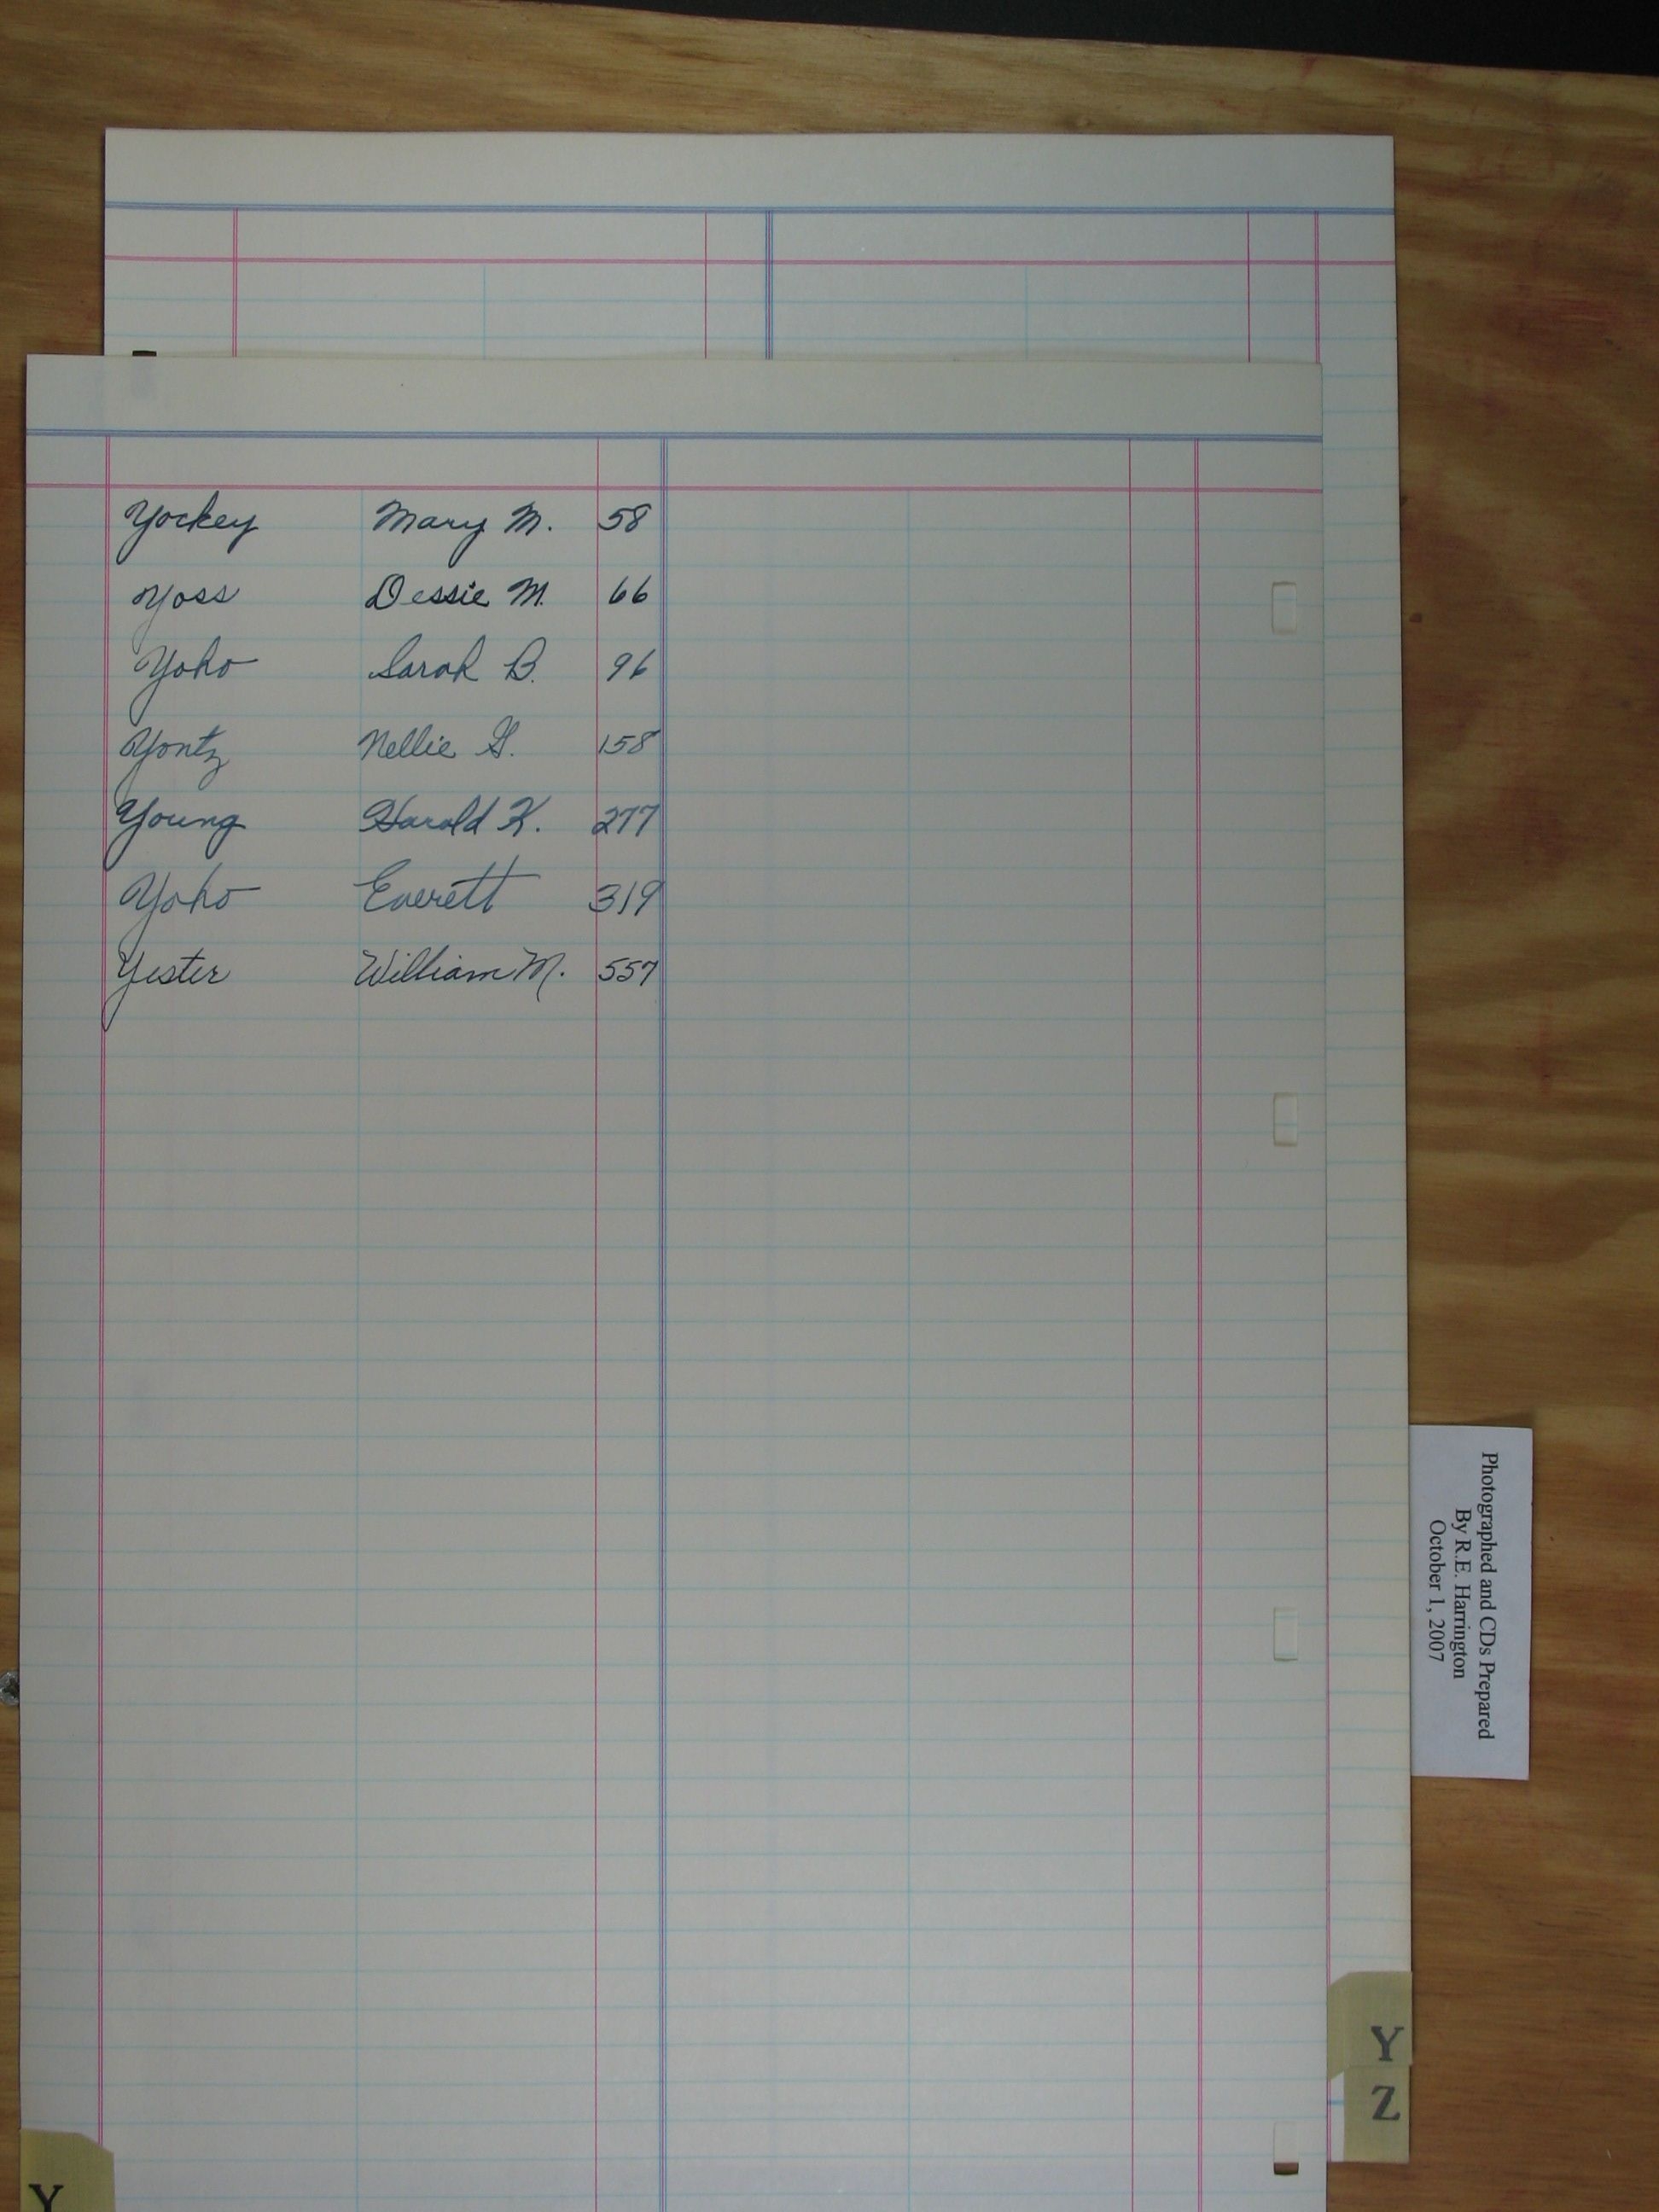 Yockey Mary M. 58
Yoss Dessie M. 66
Yoho Sarah B. 96
Yontz Nellie G. 158
Young Harold K. 277
Yoho Everett 319
Yester William M. 557
Photographed and CDs Prepared
By R.E. Harrington
October 1, 2007
Y
Z
Y